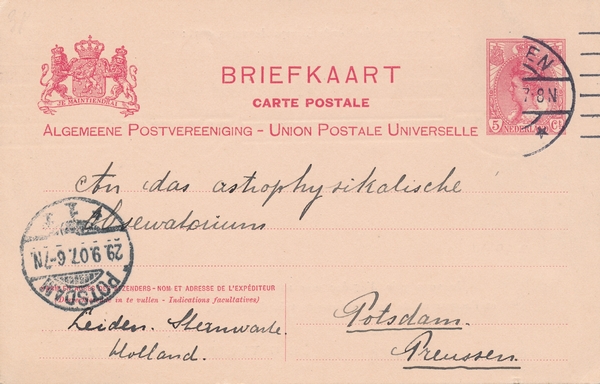 JE MAINTIENDRAI
BRIEFKAART
CARTE POSTALE
ALGEMEENE POSTVEREENIGING - UNION POSTALE UNIVERSELLE
EN
7-8N
5 NEDERLAND CT
An das astrophysikalische
Observatorium
29.9.07.6-7N.
POTSDAM
ZENDERS - NOM ET ADRESSE DE L'EXPÉDITEUR
in te vullen - Indications facultatives)
Leiden. Sternwarte.
Holland.
Potsdam.
Preussen.